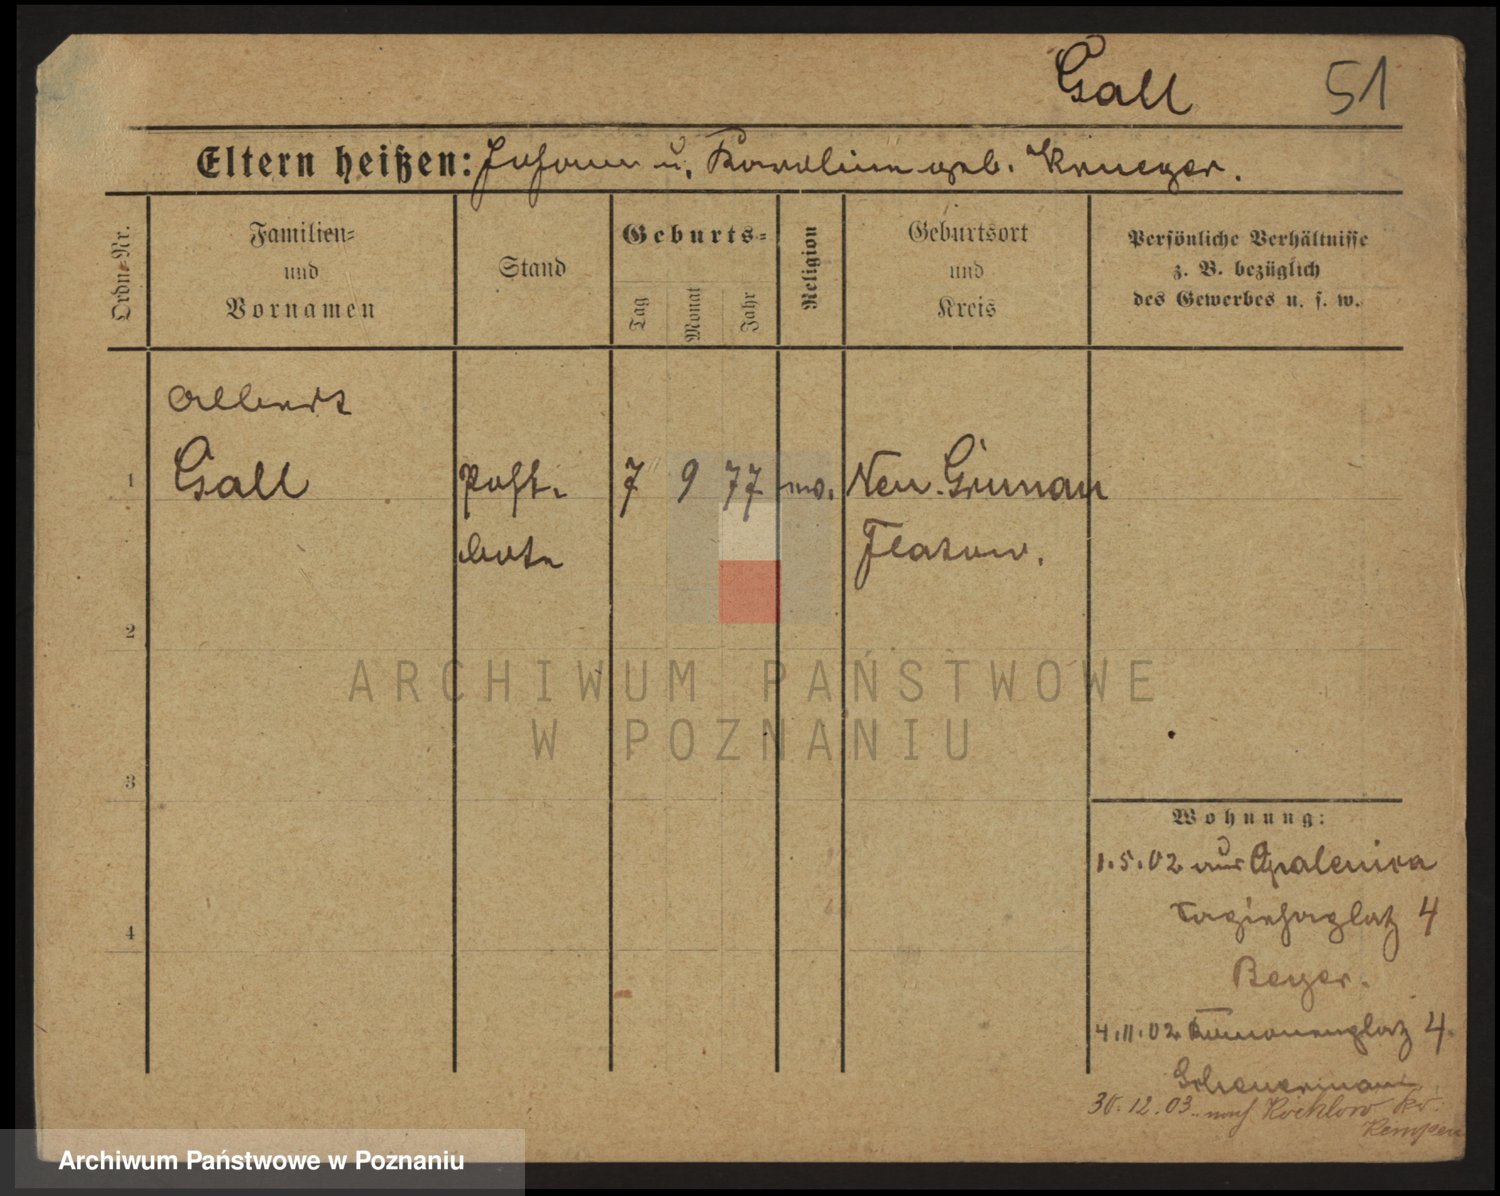 Gall 51
Eltern heißen: Johann u. Karoline geb. Krueger.
Ordn.-Nr.
Familien-
und
Vornamen
Stand
Geburts-
Tag
Monat
Jahr
Religion
Geburtsort
und
Kreis
Persönliche Verhältnisse
z. B. bezüglich
des Gewerbes u. s. w.
Albert
1 Gall Post- 7 9 77 Neu-Grunau
bote Flatow.
2
3
4
Wohnung:
1.5.02 aus Opalenica
4
Beyer.
4.11.02 4.
Scheuermann
30.12.03. nach Kr.
Kempen
ARCHIWUM PAŃSTWOWE
W POZNANIU
Archiwum Państwowe w Poznaniu